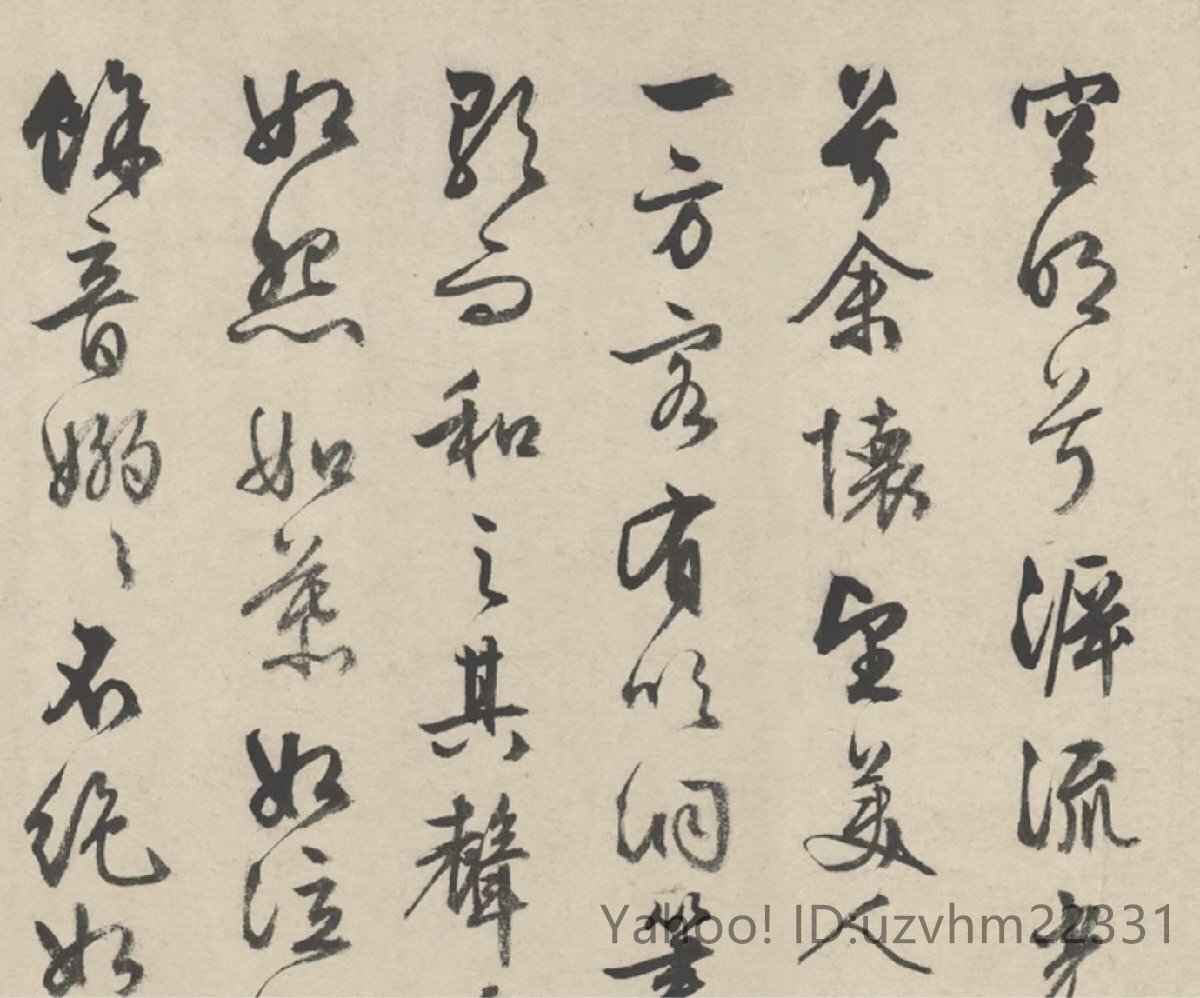 空明兮泝流光
兮余懷望美人
一方客有吹洞簫
歌而和之其聲
如怨如慕如泣
餘音嫋々不絕如
Yahoo! ID:uzvhm22331